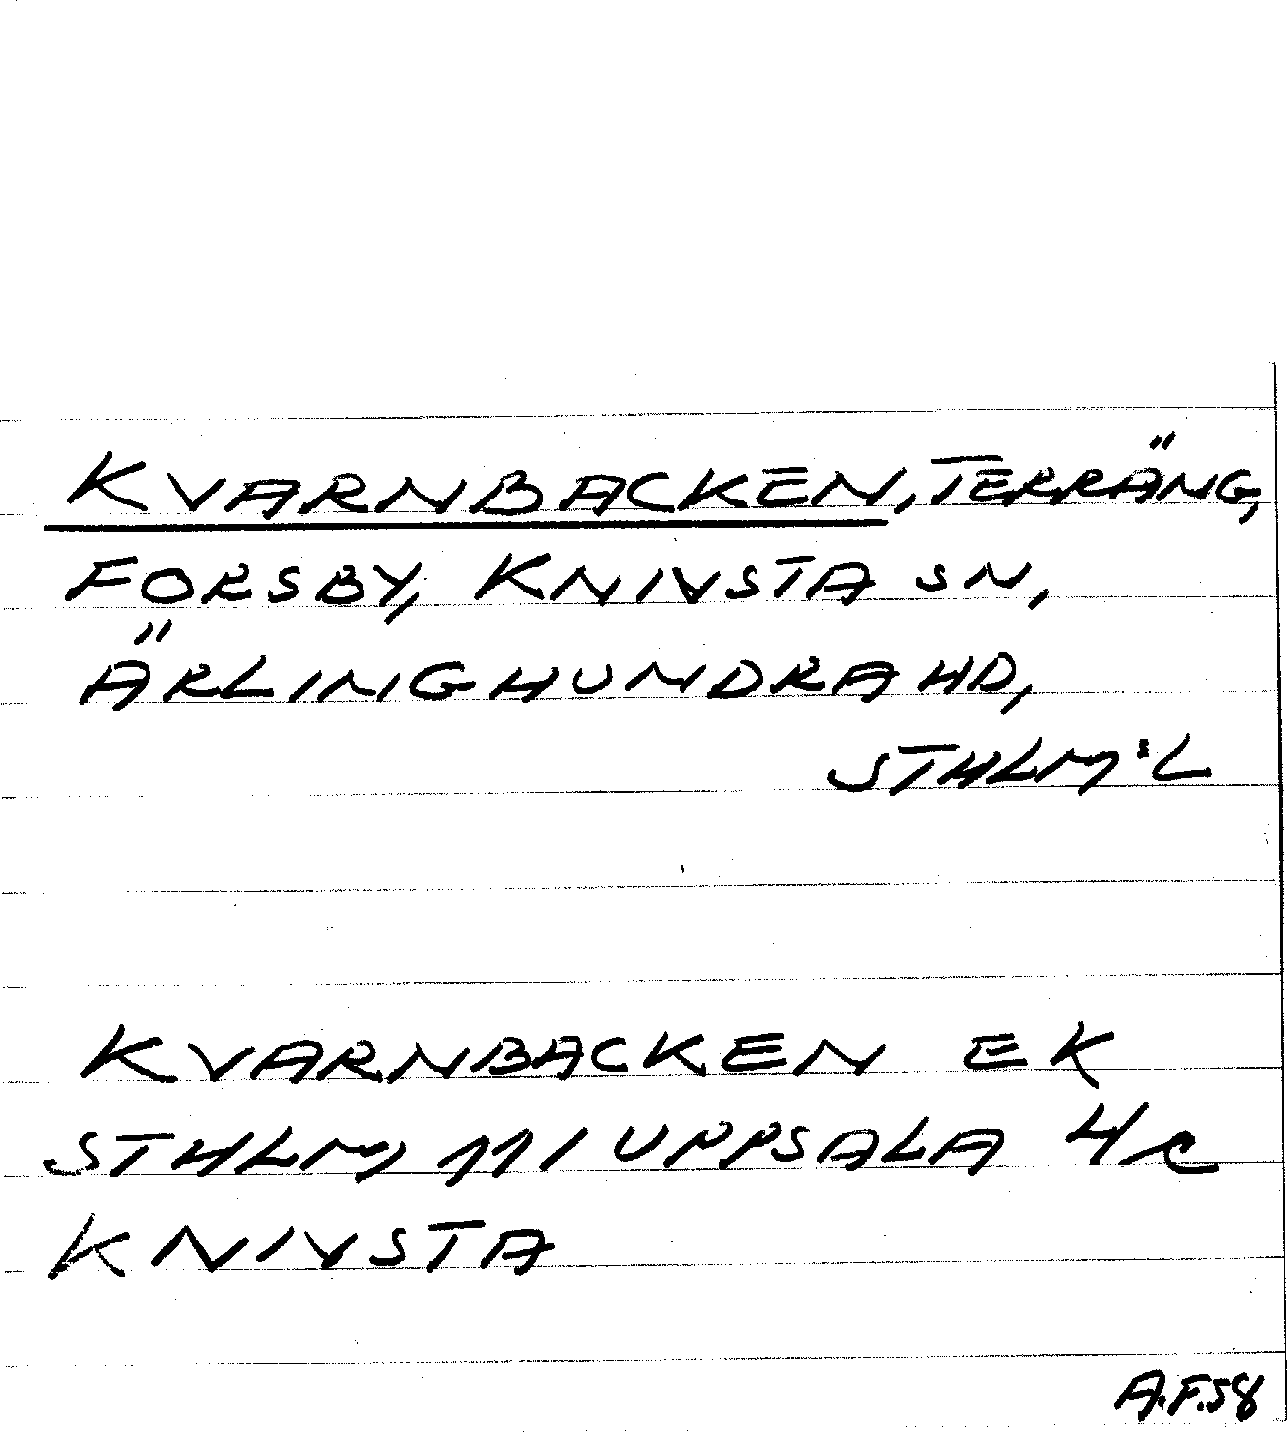 KVARNBACKEN, TERRÄNG,
FORSBY, KNIVSTA SN,
ÄRLINGHUNDRA HD,
STHLMˢL
KVARNBACKEN EK
STHLM 111 UPPSALA 4c
KNIVSTA
A.F.58